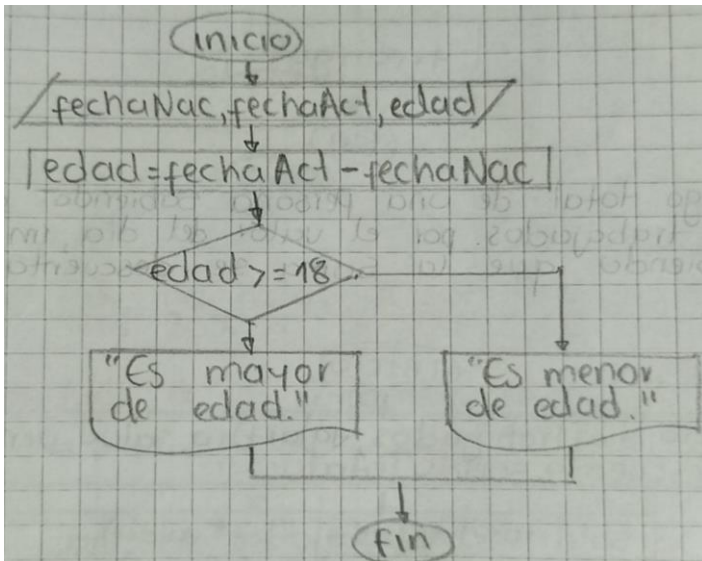 inicio
fechaNac, fechaAct, edad
edad=fechaAct-fechaNac
edad >= 18
"Es mayor
de edad."
"Es menor
de edad."
fin